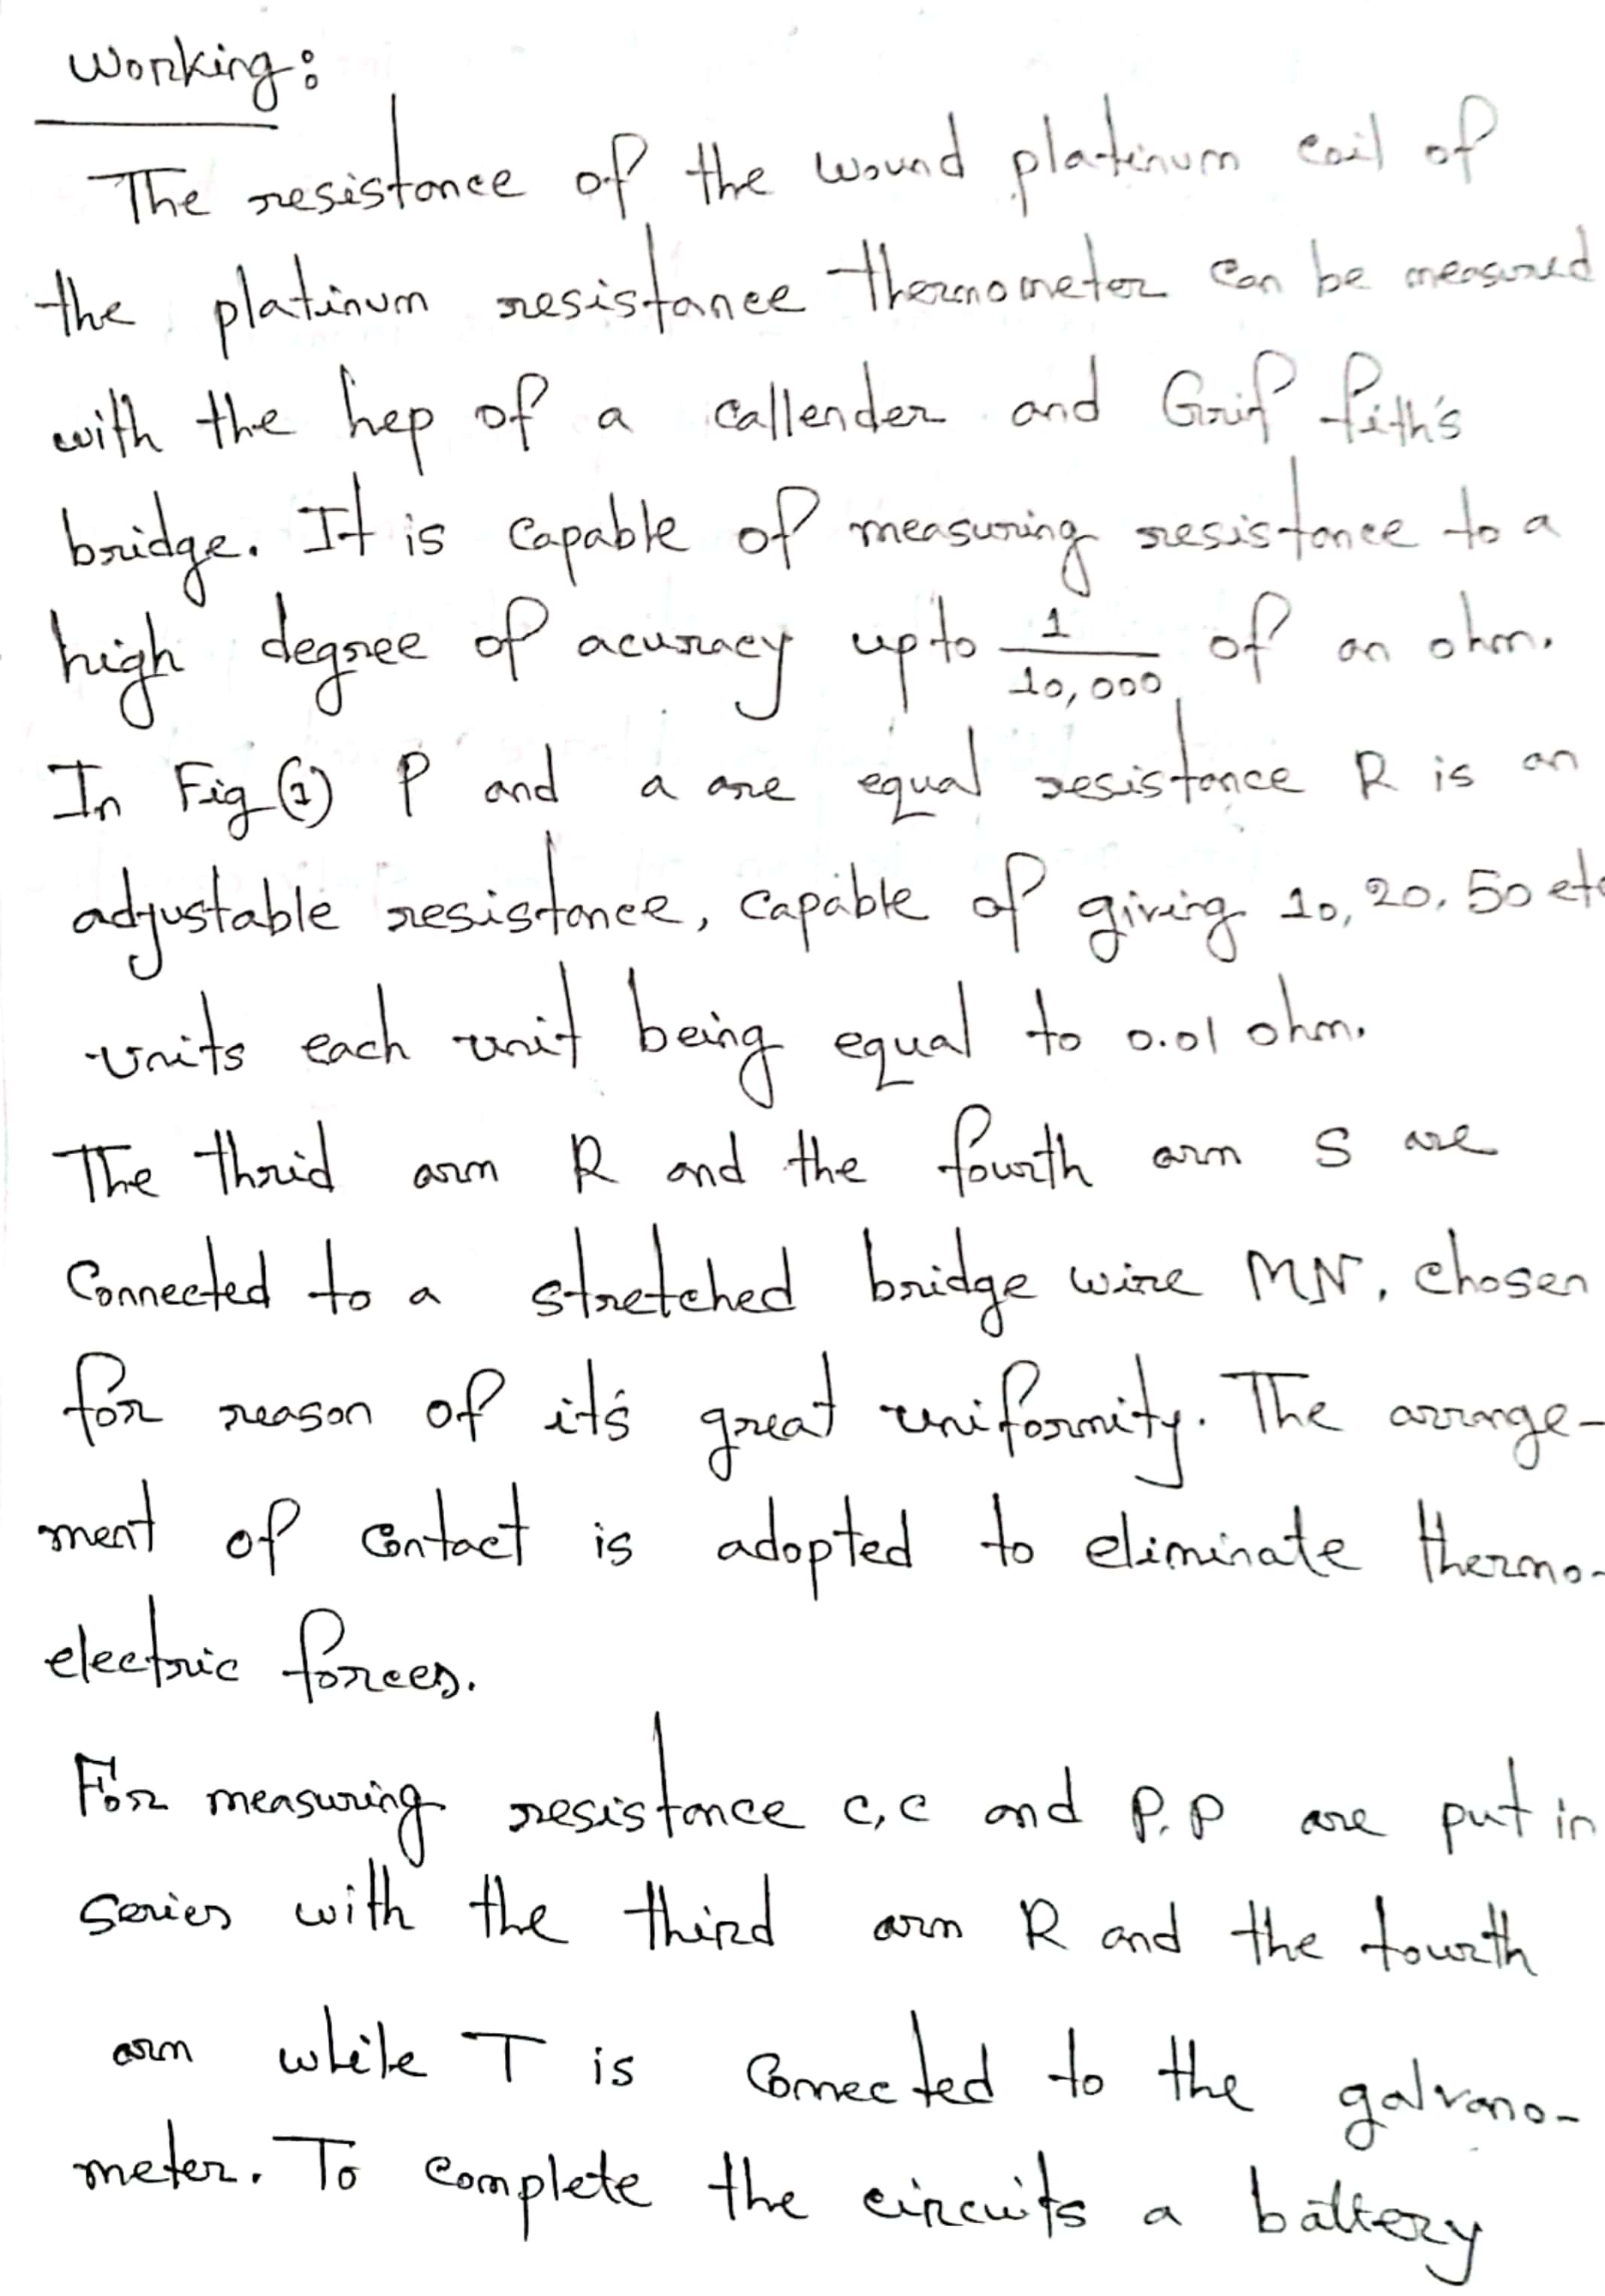 Working:
The resistance of the wound platinum coil of
the platinum resistance thermometer can be measured
with the hep of a callender and Grif fith's
bridge. It is capable of measuring resistance to a
high degree of acuracy upto 1/10,000 of an ohm.
In Fig (1) P and a are equal resistance R is an
adjustable resistance, capable of giving 10, 20, 50 etc
units each unit being equal to 0.01 ohm.
The thrid arm R and the fourth arm S are
Connected to a stretched bridge wire MN, chosen
for reason of it's great uniformity. The arrange-
ment of contact is adopted to eliminate thermo-
electric forces.
For measuring resistance c,c and P.P are put in
series with the third arm R and the fourth
arm while T is connected to the galvano-
meter. To complete the circuits a battery